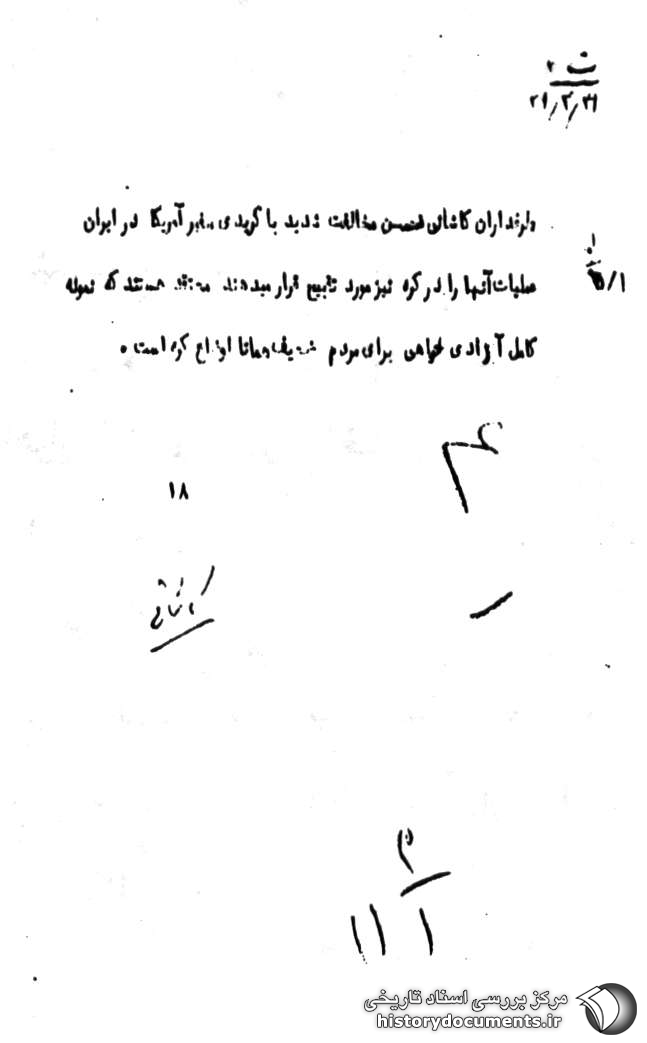 ت ۲
۲۹/۳/۳۱
طرفداران کاشانی ضمن مخالفت شدید با گریدی سفیر آمریکا در ایران
عملیات آنها را در کره نیز مورد تقبیح قرار میدهند معتقد هستند که نمونه
کامل آزادی خواهی برای مردم ضعیف همانا اوضاع کره است .
۱۸
کاشانی
مرکز بررسی اسناد تاریخی
historydocuments.ir